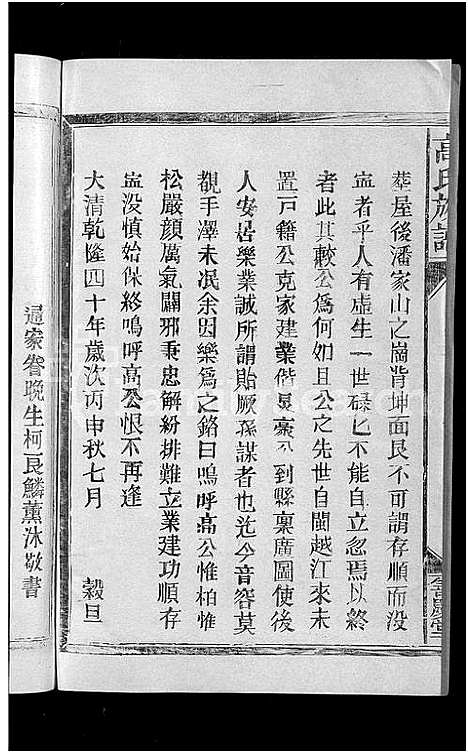 高氏族譜
塟屋後潘家山之崗背坤面艮不可謂存順而没
寍者乎人有虛生一世碌匕不能自立忽焉以終
者此其較公爲何如且公之先世自閩越江來未
置戶籍公克家建業偕稟示到縣稟廣圖使後
人安居樂業誠所謂貽厥孫謀者也迄今音容莫
覩手澤未泯余因樂爲之銘曰嗚呼高公惟柏惟
松嚴顔厲氣闢邪秉忠解紛排難立業建功順存
寍没慎始保終嗚呼高公恨不再逢
大清乾隆四十年歲次丙申秋七月 穀旦
通家眷晚生柯良鱗薰沐敬書